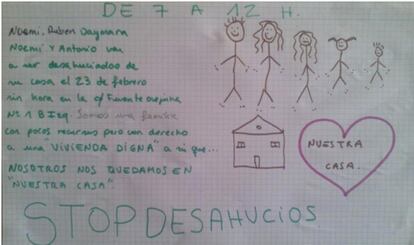 DE 7 A 12 H.
Noemi, Ruben Daymara
Noemi y Antonio van
a ser desahuciados de
su casa el 23 de febrero
sin hora en la c/ Fuente ovejuna
Nº 1 B Izq. Somos una familia
con pocos recursos pero con derecho
a una "VIVIENDA DIGNA" a si que...
NOSOTROS NOS QUEDAMOS EN
"NUESTRA CASA"
NUESTRA
CASA.
STOP DESAHUCIOS